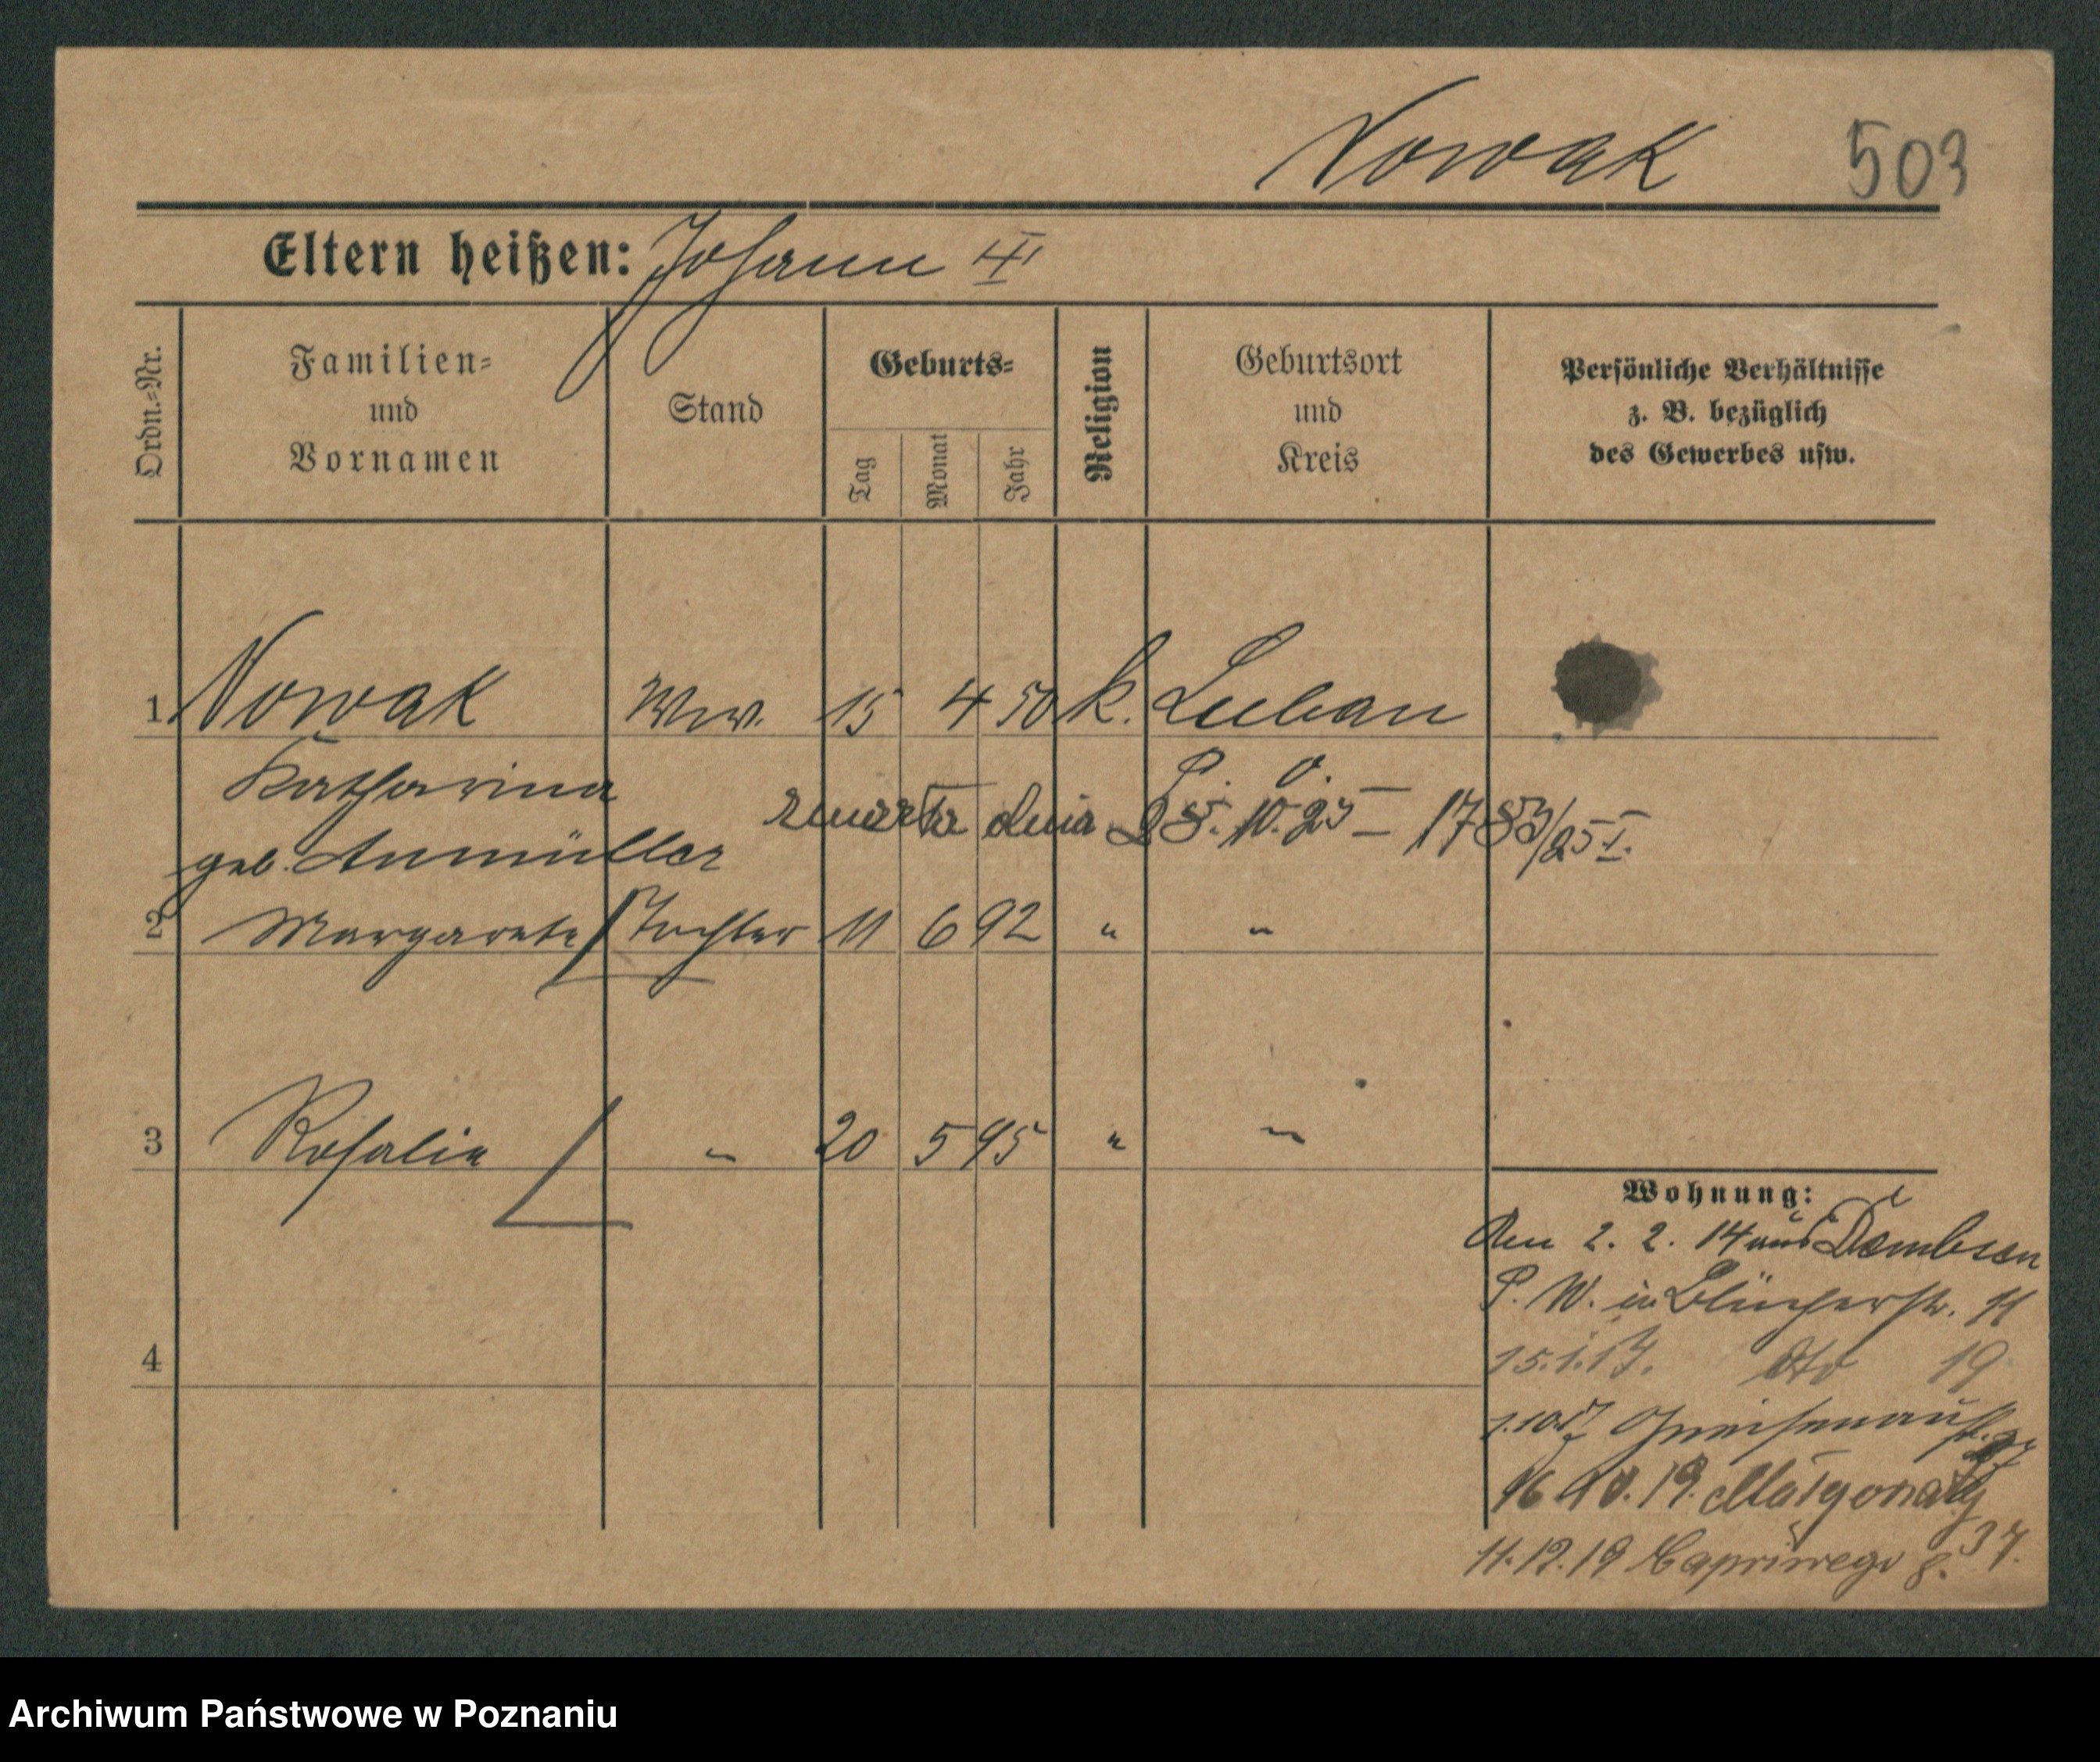 Nowak 503
Eltern heißen: Johann III
Ordn.-Nr.
Familien-
und
Vornamen
Stand
Geburts-
Tag
Monat
Jahr
Religion
Geburtsort
und
Kreis
Persönliche Verhältnisse
z. B. bezüglich
des Gewerbes usw.
1 Nowak Ww. 15 4 50 k. Luban
Katharina P. O.
zmarła dnia 28. 10. 25 – 1783/25 I.
geb. Anmüller
2 Margarete Tochter 11 6 92 " "
3 Rosalie " 20 5 95 " "
Wohnung:
Den 2. 2. 14 aus Dembsen
P. W. in Blücherstr. 11
4
15.1.17. dto 19
1.10.17 Gneisenaustr.
16 10. 19. Małgorzaty
37.
11.12.19 Capriwego 8.
Archiwum Państwowe w Poznaniu